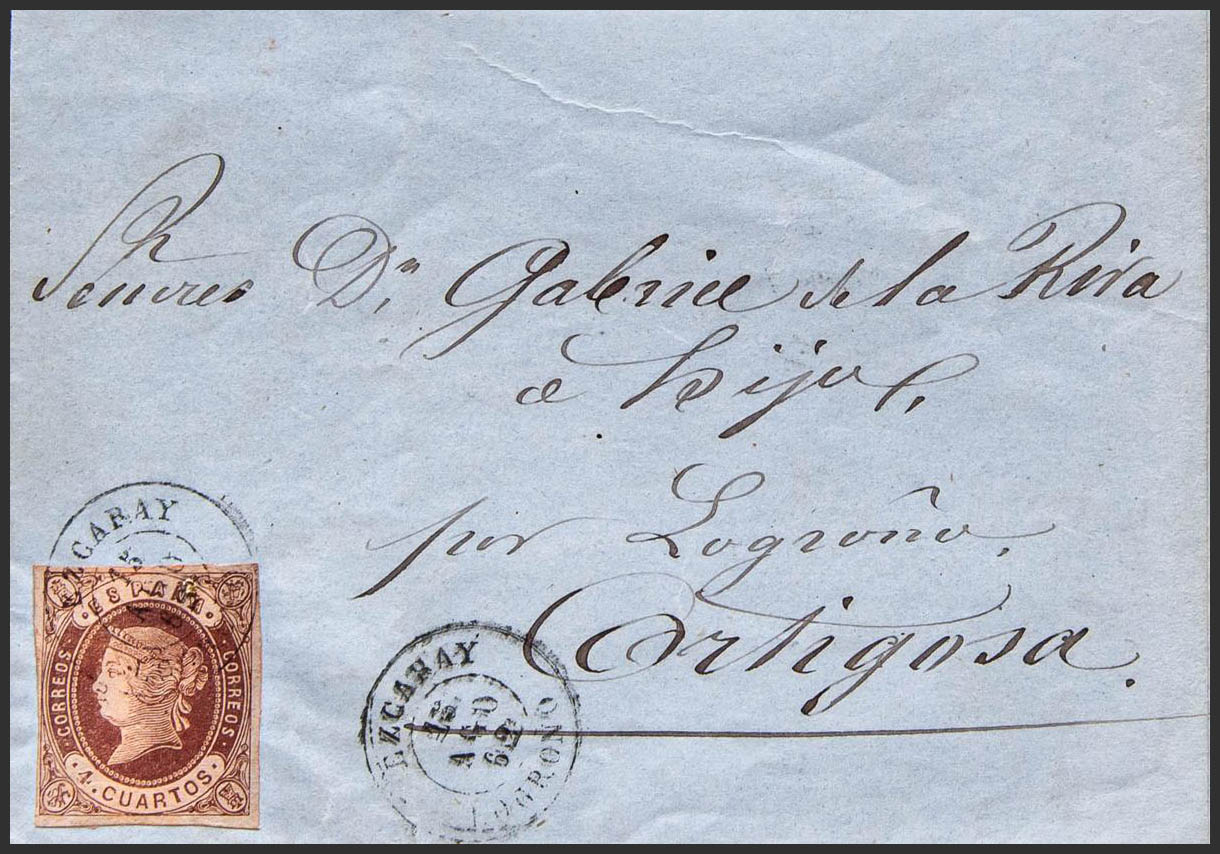 Señores Dn. Gabriel de la Riva
e hijos.
por Logroño.
Ortigosa.
EZCARAY
15
AGO
62
LOGROÑO
EZCARAY
15
ESPAÑA
CORREOS
CORREOS
4 CUARTOS.